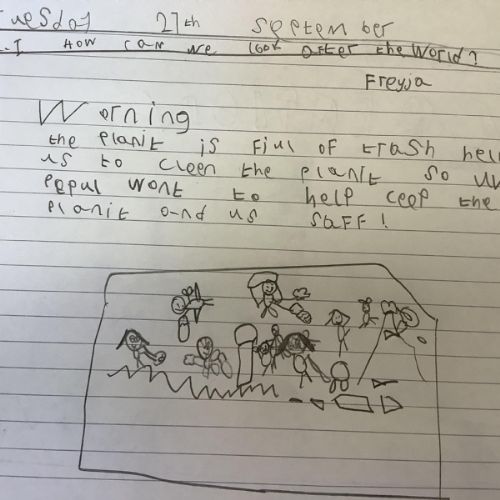 uesday 27th September
L.I How can we look after the world?
Freyja
Worning
the planit is fiul of trash hel
us to cleen the planit so
pepul wont to help ceep the
planit and us saff!